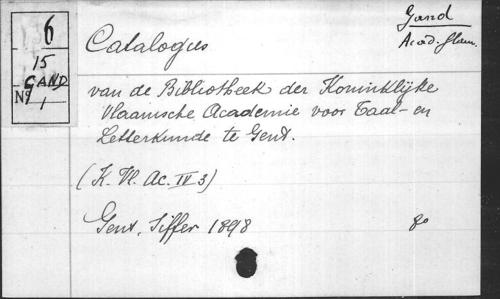 6
15
GAND
No 1
Gand
Acad. flam.
Catalogus
van de Bibliotheek der Koninklijke
Vlaamsche Academie voor Taal- en
Letterkunde te Gent.
(K. Vl. Ac. IV 3)
Gent, Siffer 1898 8o